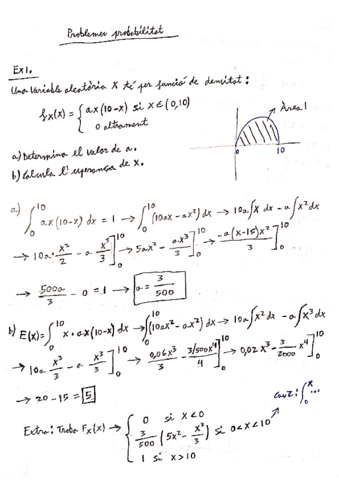 Problemes probabilitat
Ex1.
Una variable aleatòria X té per funció de densitat:
fx(x) = { ax(10-x) si x∈(0,10)
0 altrament
Àrea 1
0 10
a) Determina el valor de a.
b) Calcula l'esperança de x.
a) ∫₀¹⁰ ax(10-x) dx = 1 → ∫₀¹⁰ (10ax - ax²) dx → 10a∫x dx - a∫x² dx
→ 10a · x²/2 - a · x³/3 ]₀¹⁰ → 5ax² - ax³/3 ]₀¹⁰ → -a(x-15)x²/3 ]₀¹⁰
→ 500a/3 - 0 = 1 → a = 3/500
b) E(x) = ∫₀¹⁰ x · ax(10-x) dx → ∫₀¹⁰ (10ax² - ax³) dx → 10a∫x² dx - a∫x³ dx
→ 10a x³/3 - a x³/3 ]₀¹⁰ → 0,06x³/3 - 3/500x⁴/4 ]₀¹⁰ → 0,02x³ - 3/2000 x⁴ ]₀¹⁰
→ 20 - 15 = 5
∫₀ˣ ...
Extra: Troba Fx(x) → { 0 si x<0
3/500 (5x² - x³/3) si 0<x<10
1 si x>10